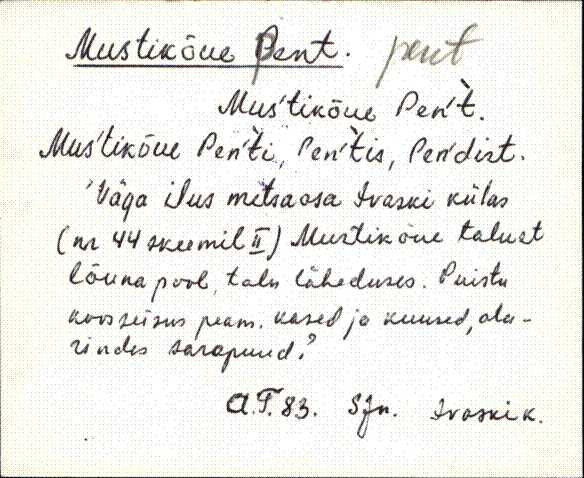 Mustikõue Pent. pent
Mus'tikõue Pen't̀.
Mus'tikõue Pen't̀i, Pen't̀is, Pen'dist.
"Väga ilus metsaosa Iraski külas
(nr 44 skeemil II) Mustikõue talust
lõuna pool, talu läheduses. Puistu
koosseisus peam. kased ja kuused, ala-
rindes sarapuud."
A.T. 83. Sjn. Iraski k.